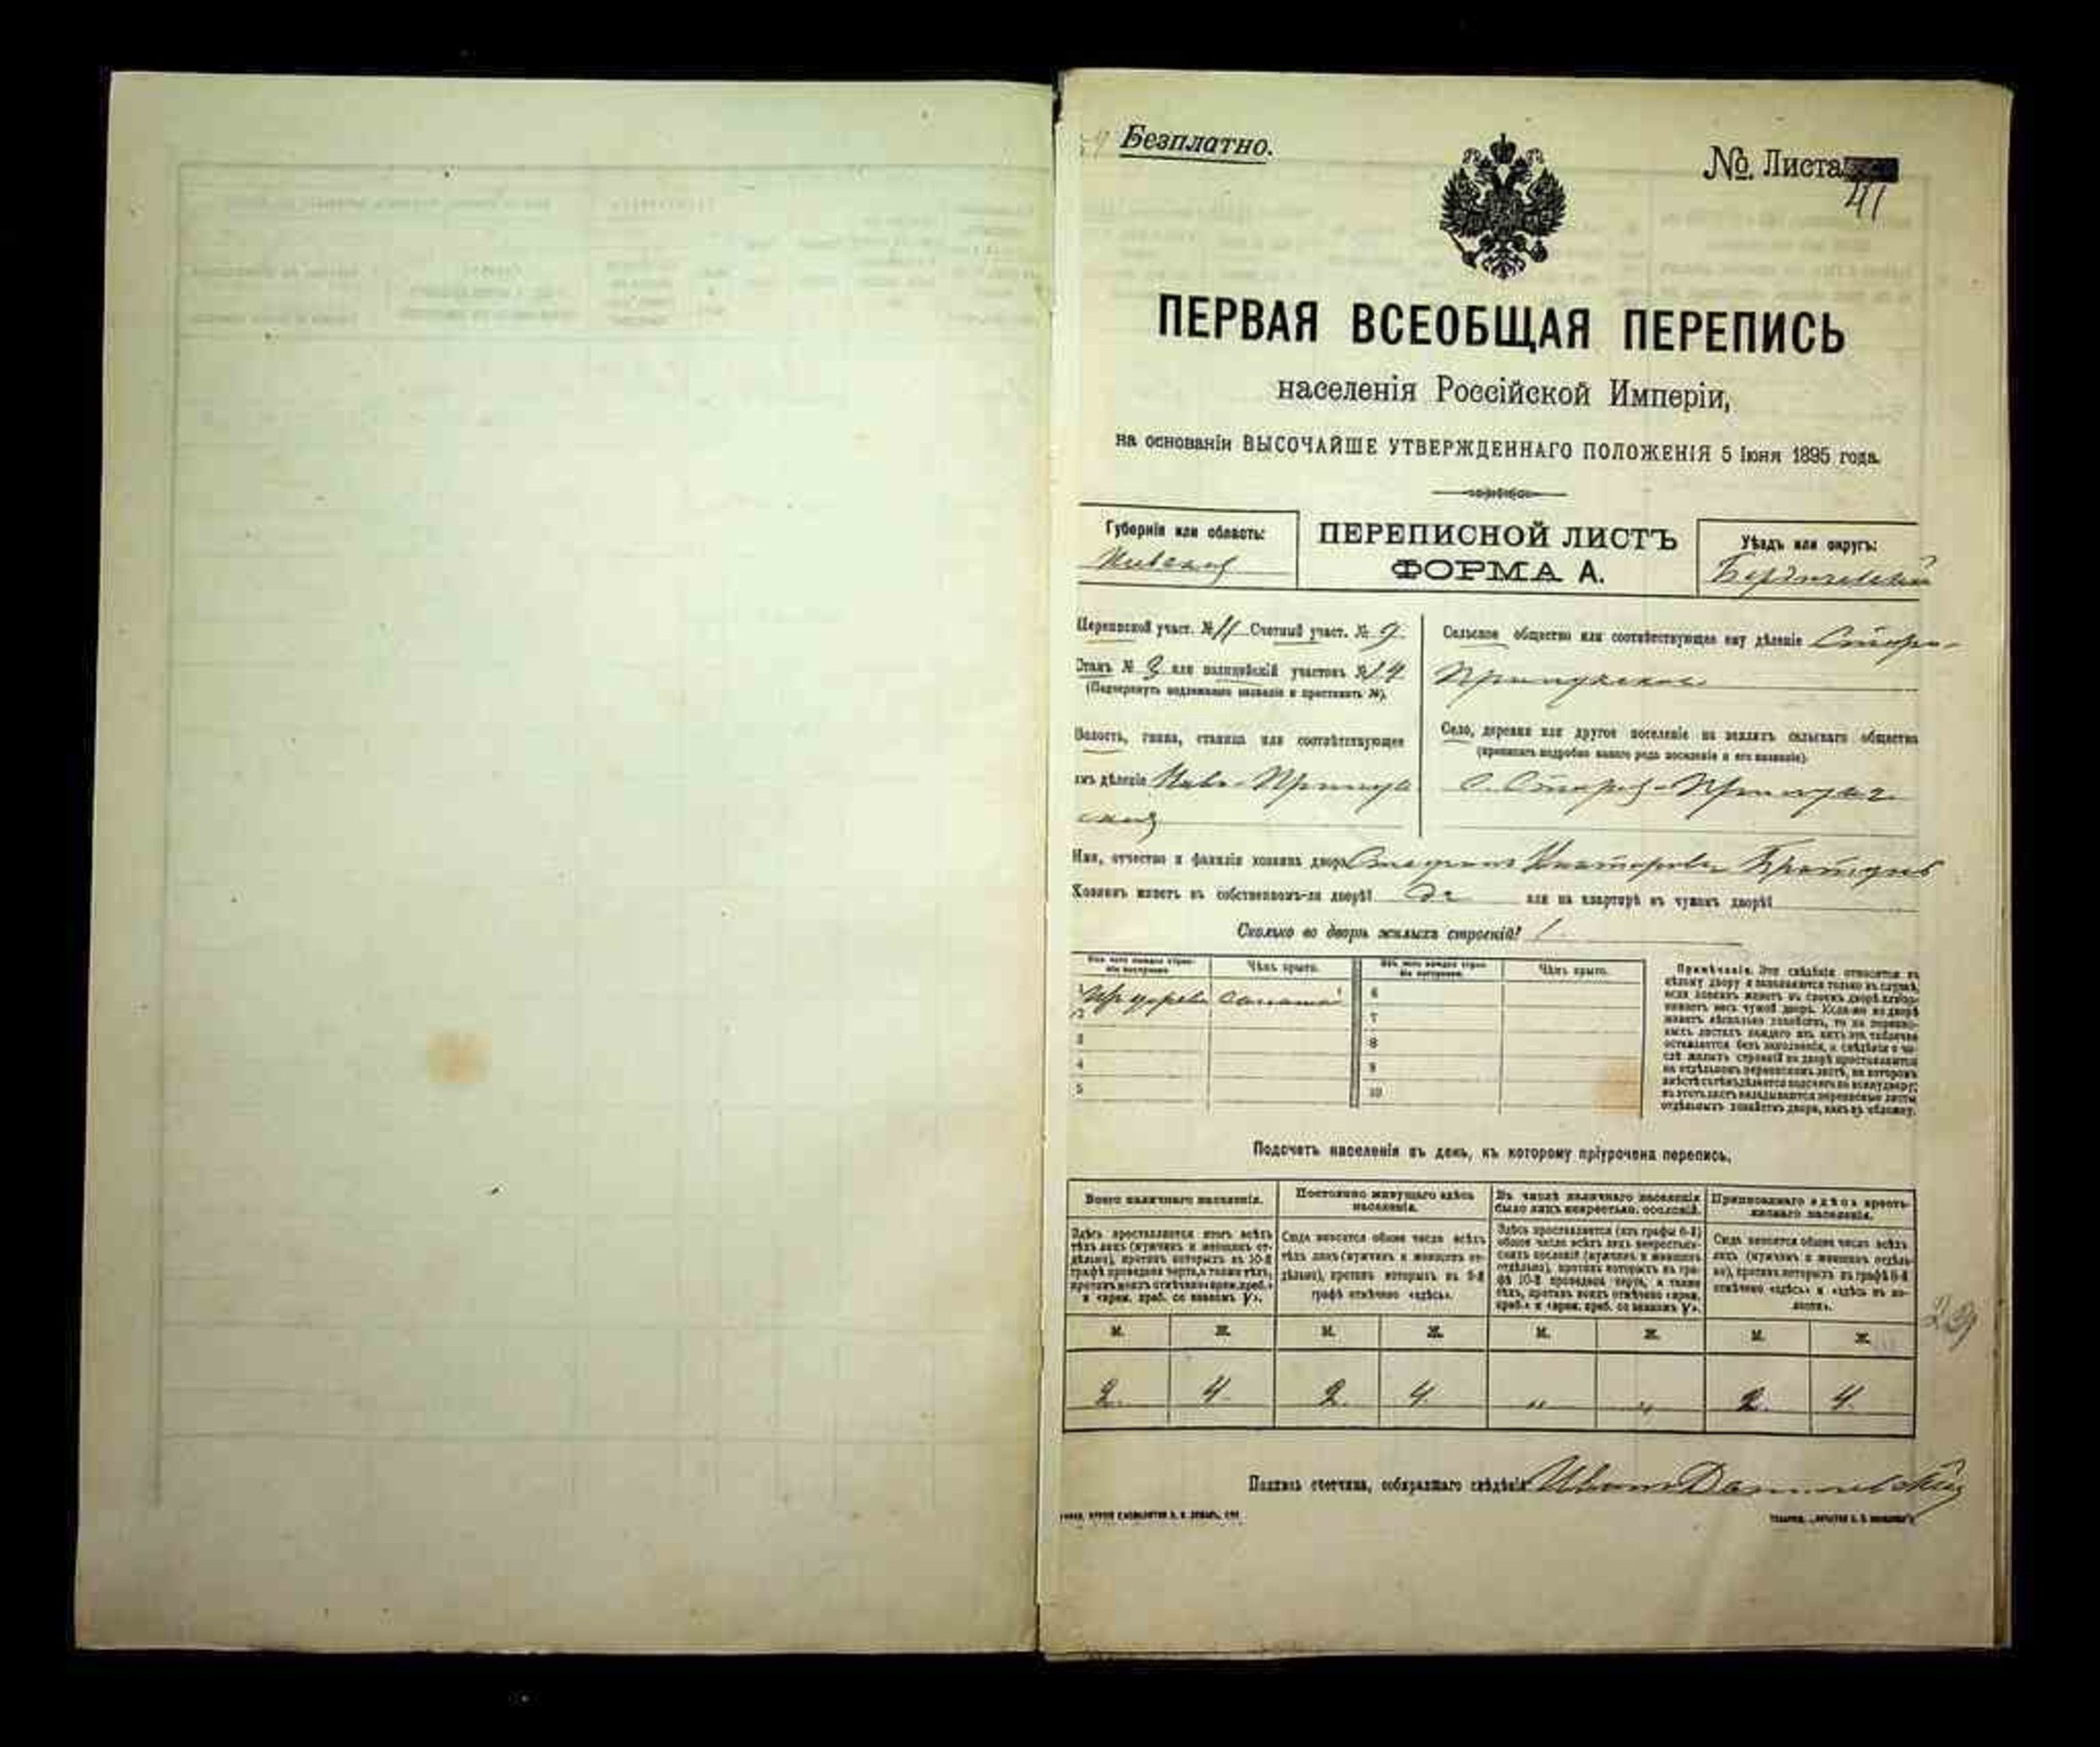 Безплатно.
№ Листа
41
ПЕРВАЯ ВСЕОБЩАЯ ПЕРЕПИСЬ
населенія Россійской Имперіи,
на основаніи ВЫСОЧАЙШЕ УТВЕРЖДЕННАГО ПОЛОЖЕНІЯ 5 Іюня 1895 года.
Губернія или область:
Киевская
ПЕРЕПИСНОЙ ЛИСТЪ
ФОРМА А.
Уѣздъ или округъ:
Бердичевскій
Переписной участ. № 11 Счетный участ. № 9
Станъ № 3 или полицейскій участокъ № 14
(Подчеркнуть надлежащее названіе и проставить №).
Волость, гмина, станица или соотвѣтствующее
имъ дѣленіе Ново-Прилук
ская
Сельское общество или соотвѣтствующее ему дѣленіе Старо-
Прилукское
Село, деревня или другое поселеніе на земляхъ сельскаго общества
(прописать подробно какого рода поселеніе и его названіе).
с. Старая-Прилука
Имя, отчество и фамилія хозяина двора
Хозяинъ живетъ въ собственномъ-ли дворѣ? да или на квартирѣ въ чужомъ дворѣ?
Сколько во дворѣ жилыхъ строеній? 1
Изъ чего каждое строеніе построено.
Чѣмъ крыто.
Изъ чего каждое строеніе построено.
Чѣмъ крыто.
соломой 6
2 7
3 8
4 9
5 10
Примѣчаніе. Эти свѣдѣнія относятся къ
цѣлому двору и заполняются только въ случаѣ,
если хозяинъ живетъ въ своемъ дворѣ или
нимаетъ весь чужой дворъ. Если-же во дворѣ
живетъ нѣсколько хозяйствъ, то на перепис-
ныхъ листахъ каждаго изъ нихъ эта табличка
оставляется безъ заполненія, а свѣдѣнія о чи-
слѣ жилыхъ строеній во дворѣ проставляются
на отдѣльномъ переписномъ листѣ, на которомъ
вмѣстѣ съ тѣмъ дѣлается подсчетъ по всему двору;
въ этотъ листъ вкладываются переписные листы
отдѣльныхъ хозяйствъ двора, какъ въ обложку.
Подсчетъ населенія въ день, къ которому пріурочена перепись.
Всего наличнаго населенія.
Постоянно живущаго здѣсь населенія.
Въ числѣ наличнаго населенія было лицъ некрестьян. сословій.
Приписаннаго здѣсь крестьянскаго населенія.
Здѣсь проставляется итогъ всѣхъ
тѣхъ лицъ (мужчинъ и женщинъ от-
дѣльно), противъ которыхъ въ 10-й
графѣ проведена черта, а также тѣхъ,
противъ коихъ отмѣчено «врем. преб.»
и «врем. преб. со знакомъ V».
Сюда вносится общее число всѣхъ
тѣхъ лицъ (мужчинъ и женщинъ от-
дѣльно), противъ которыхъ въ 9-й
графѣ отмѣчено «здѣсь».
Здѣсь проставляется (изъ графы 6-й)
общее число всѣхъ лицъ некрестьян-
скихъ сословій (мужчинъ и женщинъ
отдѣльно), противъ которыхъ въ гра-
фѣ 10-й проведена черта, а также
тѣхъ, противъ коихъ отмѣчено «врем.
преб.» и «врем. преб. со знакомъ V».
Сюда вносится общее число всѣхъ
лицъ (мужчинъ и женщинъ отдѣль-
но), противъ которыхъ въ графѣ 8-й
отмѣчено «здѣсь» и «здѣсь въ во-
лости».
М. Ж. М. Ж. М. Ж. М. Ж.
2 4 2 4 " " 2 4
29
Подпись счетчика, собиравшаго свѣдѣнія Иванъ